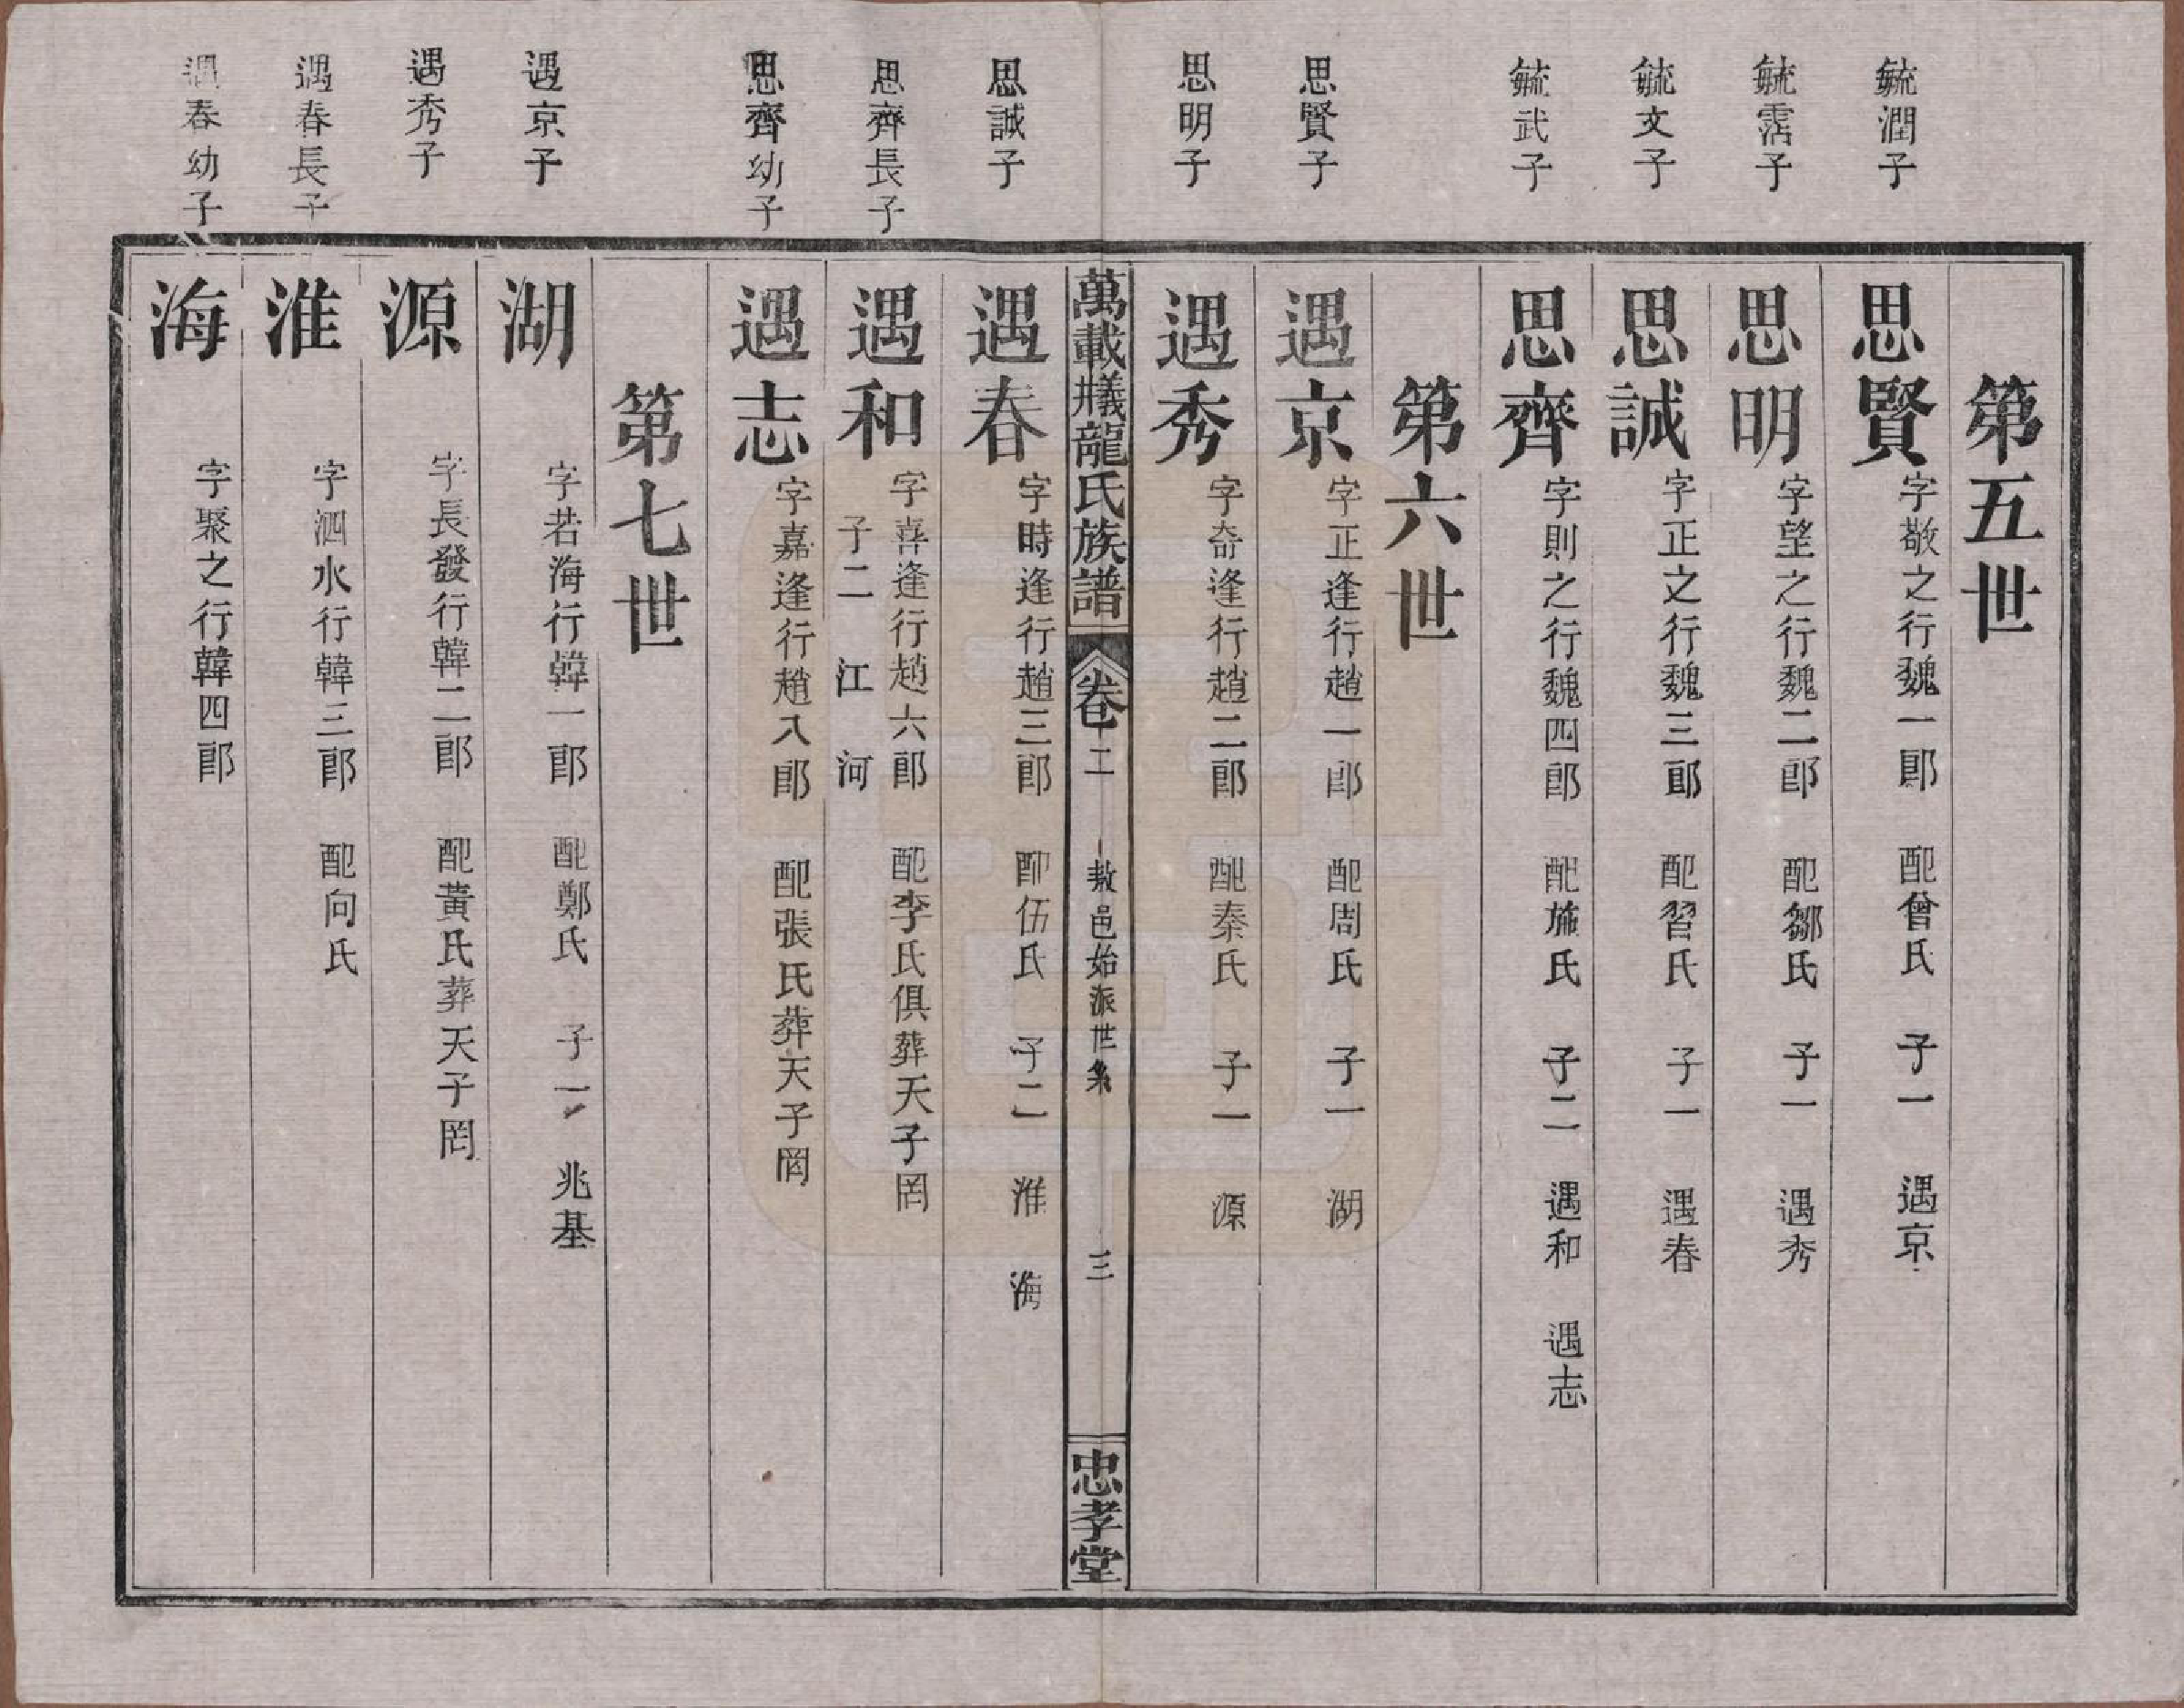 第五世
毓潤子
思賢 字敬之行魏一郎 配曾氏 子一 遇京
毓霑子
思明 字望之行魏二郎 配鄒氏 子一 遇秀
毓文子
思誠 字正之行魏三郎 配習氏 子一 遇春
毓武子
思齊 字則之行魏四郎 配施氏 子二 遇和 遇志
第六世
思賢子
遇京 字正逢行趙一郎 配周氏 子一 湖
思明子
遇秀 字奇逢行趙二郎 配秦氏 子一 源
萬載㰕龍氏族譜 卷二 敖邑始派世系 三 忠孝堂
思誠子
遇春 字時逢行趙三郎 配伍氏 子二 淮 海
思齊長子
遇和 字喜逢行趙六郎 配李氏俱葬天子罔
子二 江 河
思齊幼子
遇志 字嘉逢行趙八郎 配張氏葬天子罔
第七世
遇京子
湖 字若海行韓一郎 配鄭氏 子一 兆基
遇秀子
源 字長發行韓二郎 配黃氏葬天子罔
遇春長子
淮 字泗水行韓三郎 配向氏
遇春幼子
海 字聚之行韓四郎